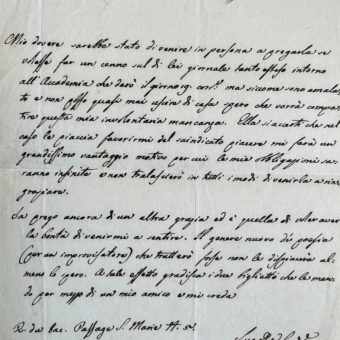 Mio dovere sarebbe stato di venire in persona a pregarla se
volesse far un cenno sul di lei giornale tanto esteso intorno
all'Accademia che darò il giorno 19. corr.e ma siccome sono amala-
to e non posso quasi mai escire di casa spero che vorrà compa-
tire questa mia involontaria mancanza. Ella si accerti che nel
caso le piaccia favorirmi del suindicato piacere mi sarà un
grandissimo vantaggio motivo per cui le mie obbligazioni sa-
ranno infinite e non tralascerò in tutti i modi di venirla a rin-
graziare.
La prego ancora di un altra grazia ed è quella di voler aver
la bontà di venirmi a sentire. Il genere nuovo di poesia
(per un improvisatore) che tratterò forse non le dispiacerà al-
meno lo spero. A tale effetto gradisca i due biglietti che le man-
do per mezzo di un mio amico e mi creda
R. du Bac. Passage S. Marie N.